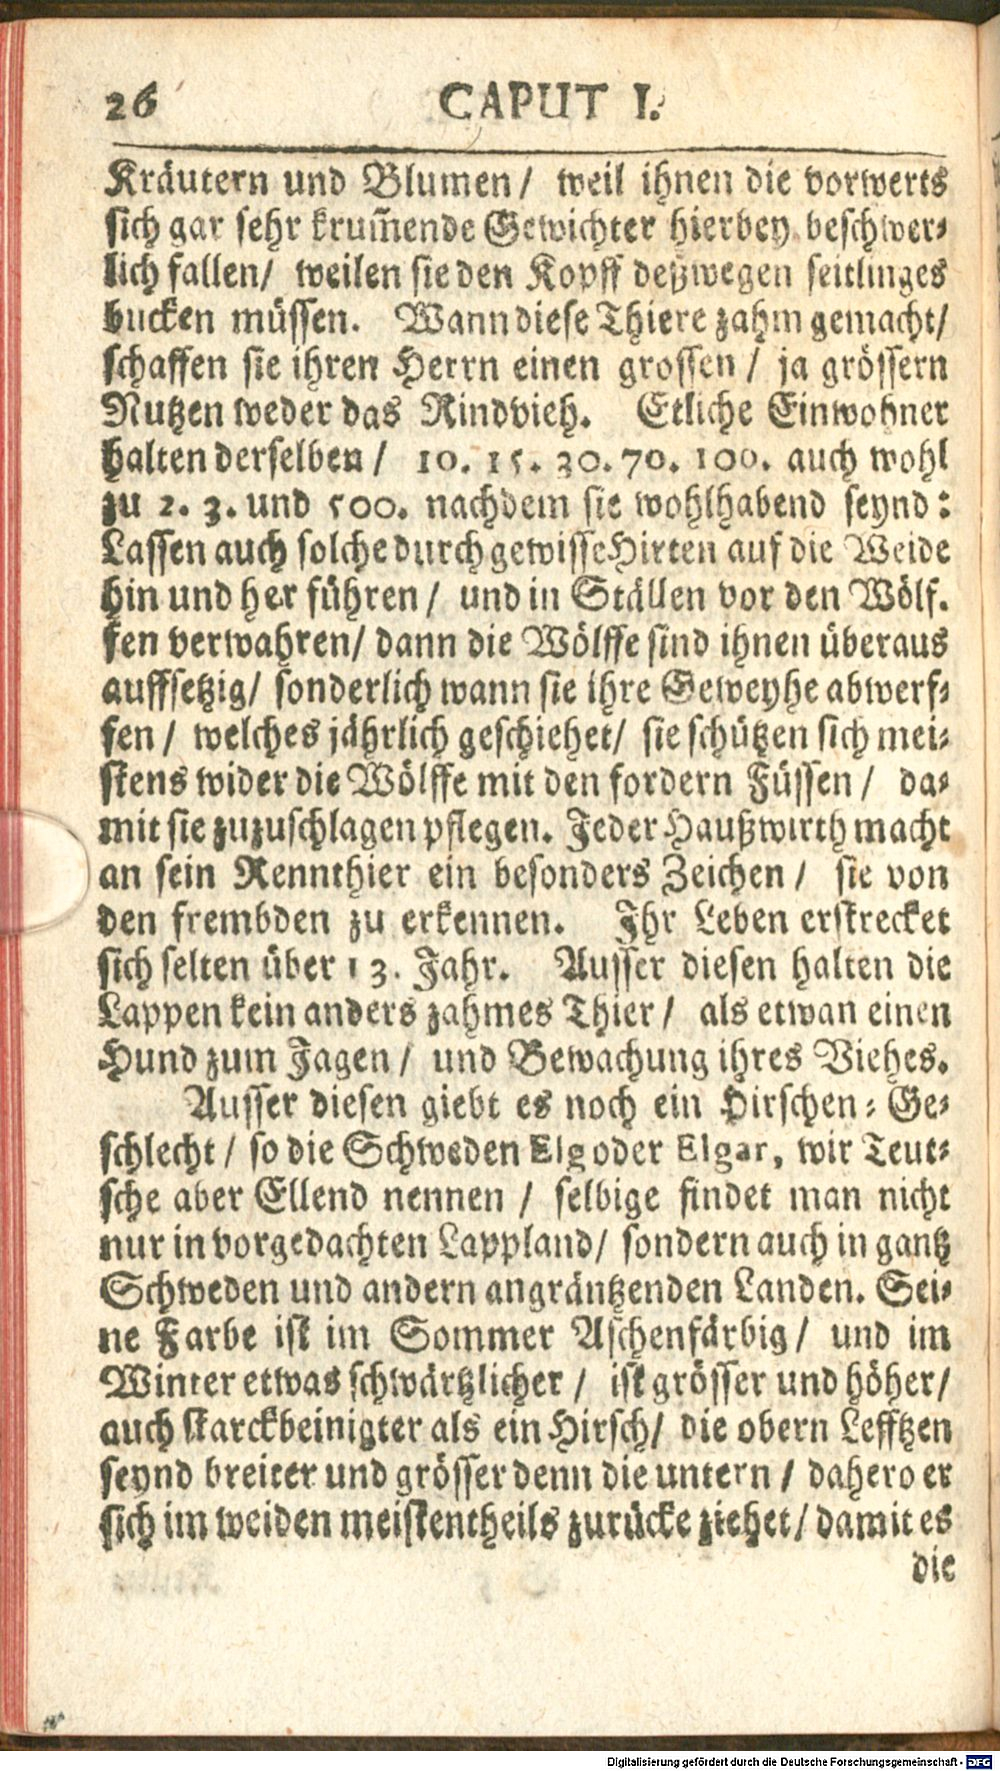 26 CAPUT I.
Kräutern und Blumen/ weil ihnen die vorwerts
sich gar sehr krum̃ende Gewichter hierbey beschwer-
lich fallen/ weilen sie den Kopff deßwegen seitlinges
bucken müssen. Wann diese Thiere zahm gemacht/
schaffen sie ihren Herrn einen grossen/ ja grössern
Nutzen weder das Rindvieh. Etliche Einwohner
halten derselben/ 10. 15. 30. 70. 100. auch wohl
zu 2. 3. und 500. nachdem sie wohlhabend seynd:
Lassen auch solche durch gewisse Hirten auf die Weide
hin und her führen/ und in Ställen vor den Wölf.
fen verwahren/ dann die Wölffe sind ihnen überaus
auffsetzig/ sonderlich wann sie ihre Geweyhe abwerf-
fen/ welches jährlich geschiehet/ sie schützen sich mei-
stens wider die Wölffe mit den fordern Füssen/ da-
mit sie zuzuschlagen pflegen. Jeder Haußwirth macht
an sein Rennthier ein besonders Zeichen/ sie von
den frembden zu erkennen. Ihr Leben erstrecket
sich selten über 13. Jahr. Ausser diesen halten die
Lappen kein anders zahmes Thier/ als etwan einen
Hund zum Jagen/ und Bewachung ihres Viehes.
Ausser diesen giebt es noch ein Hirschen-Ge-
schlecht/ so die Schweden Elg oder Elgar, wir Teut-
sche aber Ellend nennen/ selbige findet man nicht
nur in vorgedachten Lappland/ sondern auch in gantz
Schweden und andern angräntzenden Landen. Sei-
ne Farbe ist im Sommer Aschenfärbig/ und im
Winter etwas schwärtzlicher/ ist grösser und höher/
auch starckbeinigter als ein Hirsch/ die obern Lefftzen
seynd breiter und grösser denn die untern/ dahero er
sich im weiden meistentheils zurücke ziehet/ damit es
die
Digitalisierung gefördert durch die Deutsche Forschungsgemeinschaft - DFG